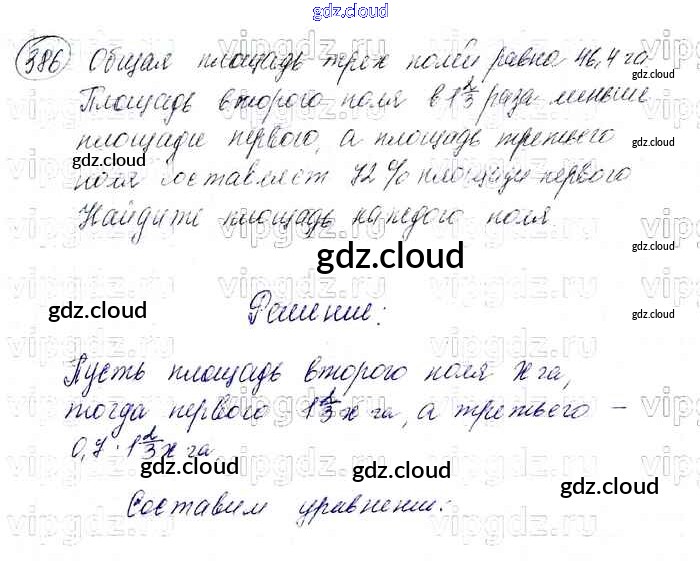 gdz.cloud
386 Общая площадь трех полей равна 46,4 га
Площадь второго поля в 1 2/3 раза меньше
площади первого, а площадь третьего
gdz.cloud
поля составляет 72 % площади первого
Найдите площадь каждого поля
gdz.cloud
gdz.cloud
gdz.cloud
gdz.cloud
gdz.cloud
Решение:
Пусть площадь второго поля x га,
тогда первого 1 2/3 x га, а третьего –
0,7 · 1 2/3 x га
gdz.cloud
gdz.cloud
gdz.cloud
gdz.cloud
Составим уравнение: